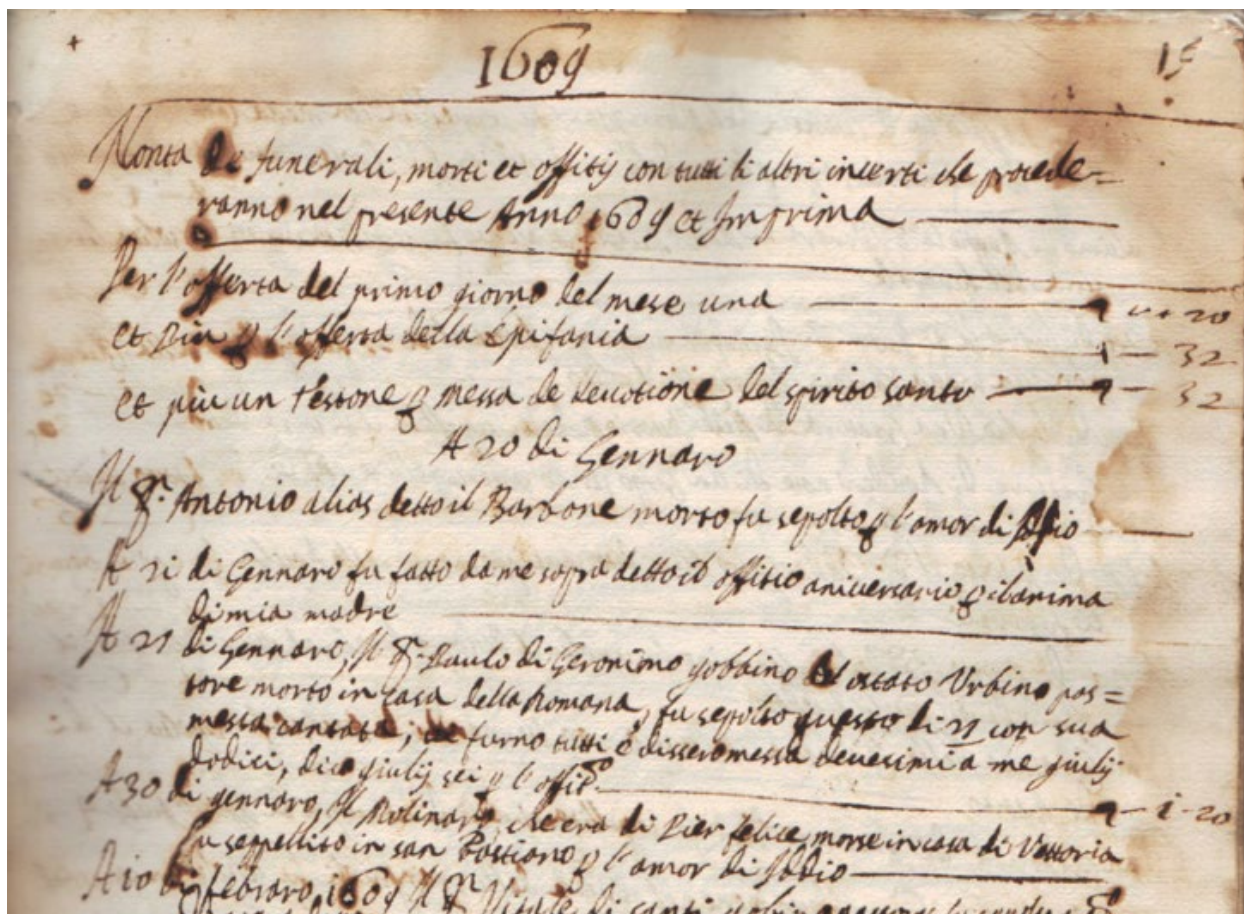 1609
15
Nonta de funerali, morti et offitij con tutti li altri incerti che procede=
ranno nel presente Anno 1609 et Imprima
Per l'offerta del primo giorno del mese una 20
et piu p l'offerta della Epifania 1 - 32
et piu un testone p messa de devotione del spirito santo 32
A 20 di Gennaro
Il Antonio alias detto il Barbone morto fu sepolto p l'amor di Iddio
A 21 di Gennaro fu fatto da me sopra detto offitio aniversario p l'anima
di mia madre
A 27 di Gennaro, Il Paulo di Geronimo gobbino stato Urbino pas=
tore morto in casa della Romana, fu sepolto questo di 27 con sua
messa cantata, furno tutti disseromessa devesimi a me giulij
dodici, dico giulij sei p l'offit.º 1 - 20
A 30 di gennaro, Il Molinaro, che era di Pier felice, morse in casa di Vettoria
fu seppellito in san Bastiano p l'amor di Iddio
A 10 di febraro, 1609 Il Vitale di santi